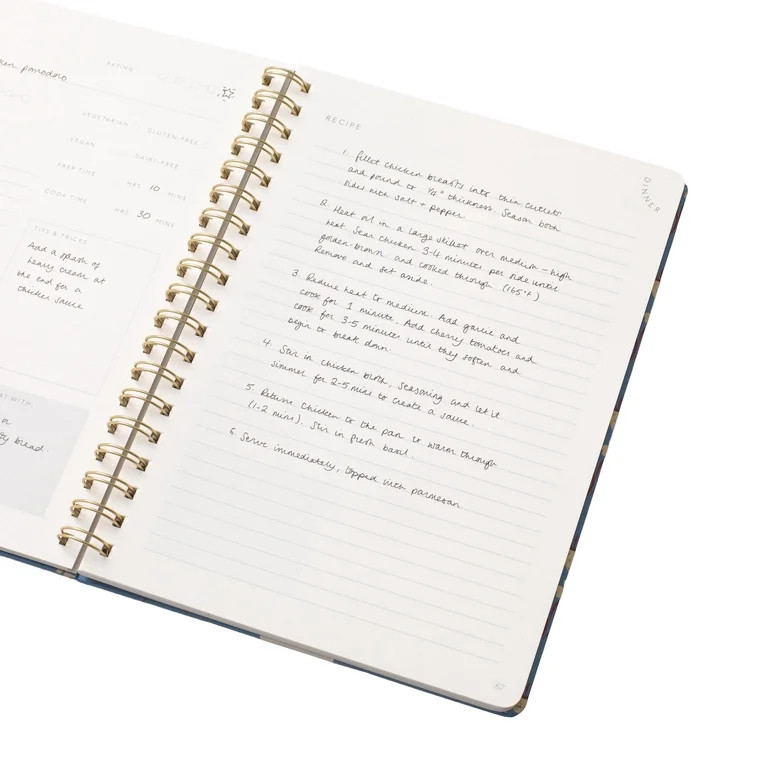 pomodoro
RATING
VEGETARIAN
GLUTEN-FREE
VEGAN
DAIRY-FREE
PREP TIME HRS 10 MINS
COOK TIME HRS 30 MINS
TIPS & TRICKS
Add a splash of
heavy cream at
the end for a
chicken sauce
WITH
bread.
RECIPE
DINNER
1. fillet chicken breasts into thin cutlets
and pound to 1/4" thickness. Season both
sides with salt + pepper
2. Heat oil in a large skillet over medium-high
heat. Sear chicken 3-4 minutes per side until
golden-brown and cooked through (165°F)
Remove and set aside.
3. Reduce heat to medium. Add garlic and
cook for 1 minute. Add cherry tomatoes and
cook for 3-5 minutes until they soften and
begin to break down.
4. Stir in chicken broth, seasoning and let it
simmer for 2-5 mins to create a sauce.
5. Return chicken to the pan to warm through
(1-2 mins). Stir in fresh basil.
6. Serve immediately, topped with parmesan